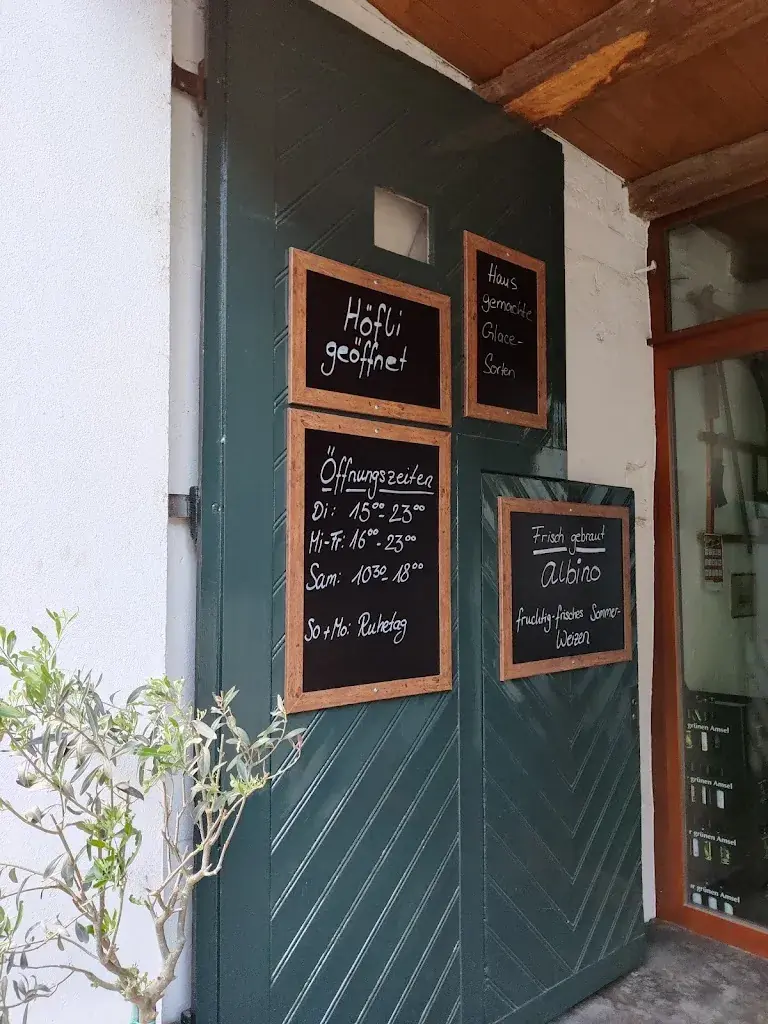 Höfli
geöffnet
Haus
gemachte
Glace-
Sorten
Öffnungszeiten
Di: 15⁰⁰- 23⁰⁰
Mi-Fr: 16⁰⁰- 23⁰⁰
Sam: 10³⁰- 18⁰⁰
So + Mo: Ruhetag
Frisch gebraut
Albino
fruchtig-frisches Sommer-
Weizen
grünen Amsel
grünen Amsel
r grünen Amsel
r grünen Amsel